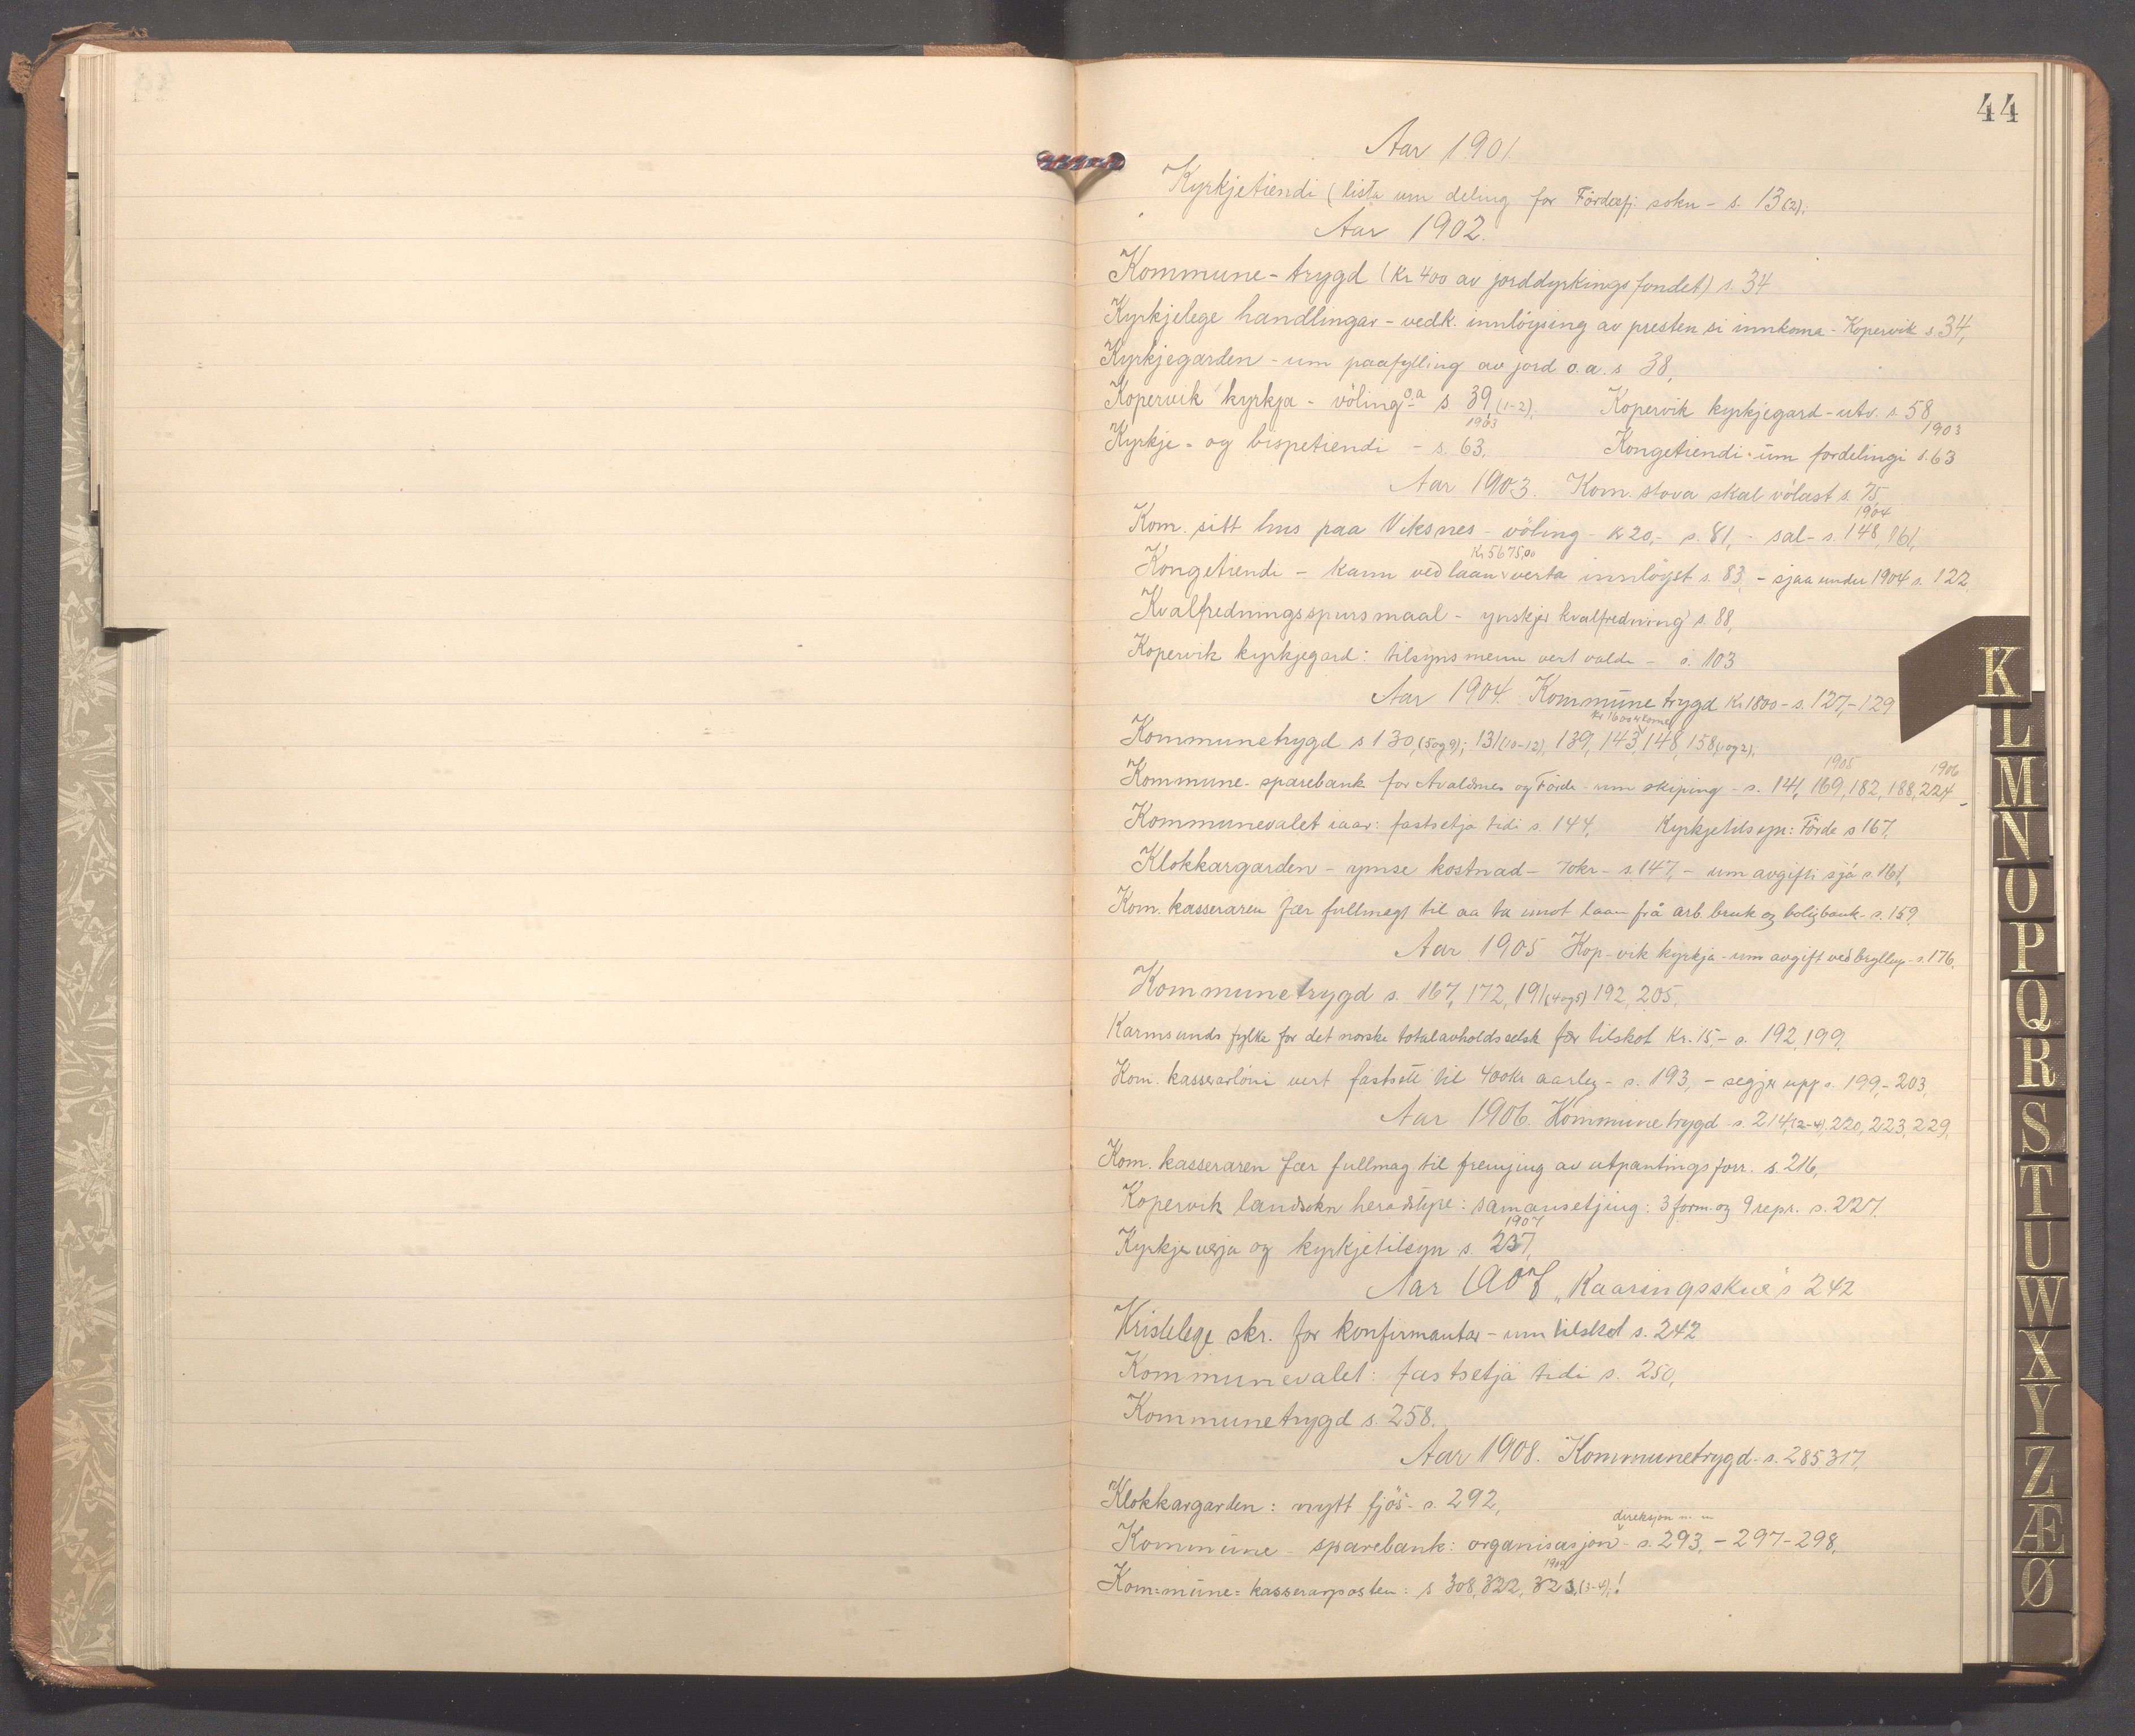 44
Aar 1901
Kyrkjetiendi (lista um deling for Fördesfj. sokn - s. 13(2).
Aar 1902.
Kommune-trygd (Kr 400 av jorddyrkingsfondet) s. 34
Kyrkjelege handlingar - vedk. innlöysing av presten si innkoma - Kopervik s. 34,
Kyrkjegarden - um paafylling av jord o.a. s 38,
Kopervik kyrkja - völing o.a s 39,(1-2). Kopervik kyrkjegard - utv. s. 58,
1903 1903
Kyrkje- og bispetiendi - s. 63. Kongetiendi - um fordelingi s. 63
Aar 1903. Kom. stova skal völast s. 75,
1904
Kom. sitt hus paa Viksnes - völing - kr 20,- s. 81, - sal - s. 148, 161,
Kr 5675,00
Kongetiendi - kann ved laan verta innlöyst s. 83, - sjaa under 1904 s. 122
Kvalfredningsspursmaal - ynskjer kvalfredning s. 88,
Kopervik kyrkjegard: tilsynsmenn vert valde - s. 103
Aar 1904. Kommune trygd Kr 1800 - s. 127,-129
Kommunetrygd s 130,(5 og 9); 131(10-12), 139, 143, 148, 158(1 og 2).
1905 1906
Kommune-sparebank for Avaldsnes og Förde - um skiping - s. 141, 169, 182, 188, 224 -
Kommunevalet iaar: fastsetja tidi s. 144, Kyrkjetilsyn: Förde s 167,
Klokkargarden - ymse kostnad - 70kr - s. 147, - um avgifti sjå s. 161,
Kom. kasseraren fær fullmagt til aa ta imot laan frå arb. bruk og boligbank - s. 159
Aar 1905 Kop-vik kyrkja - um avgift ved bryllup - s. 176,
Kommunetrygd s. 167, 172, 191(4 og 5) 192, 205,
Karmsunds fylke for det norske totalavholdsselsk fær tilskot Kr. 15,- s. 192, 199,
Kom. kasserarlöni vert fastsett til 400kr aarleg - s. 193, - segjer upp s. 199,- 203,
Aar 1906. Kommune trygd - s. 214,(2-4), 220, 223, 229,
Kom. kasseraren fær fullmag til fremjing av utpantingsforr. s. 216,
Kopervik landsokn heradstyre: samansetjing: 3 form. og 9 repr. s. 227.
1907
Kyrkjeverja og kyrkjetilsyn s. 237,
Aar 1907 „Kaaringsskue" s 242
Kristelege skr. for konfirmantar - um tilskot s. 242
Kommunevalet: fastsetja tidi s. 250,
Kommunetrygd s. 258.
Aar 1908. Kommunetrygd - s. 285 317,
Klokkargarden: nytt fjös - s. 292,
direksjon m. m
Kommune - sparebank: organisasjon - s. 293, - 297-298,
1909
Kom=mune=kasserarposten: s 308, 322, 323,(3-4),!
K
L
M
N
O
P
Q
R
S
T
U
W
X
Y
Z
Æ
Ø